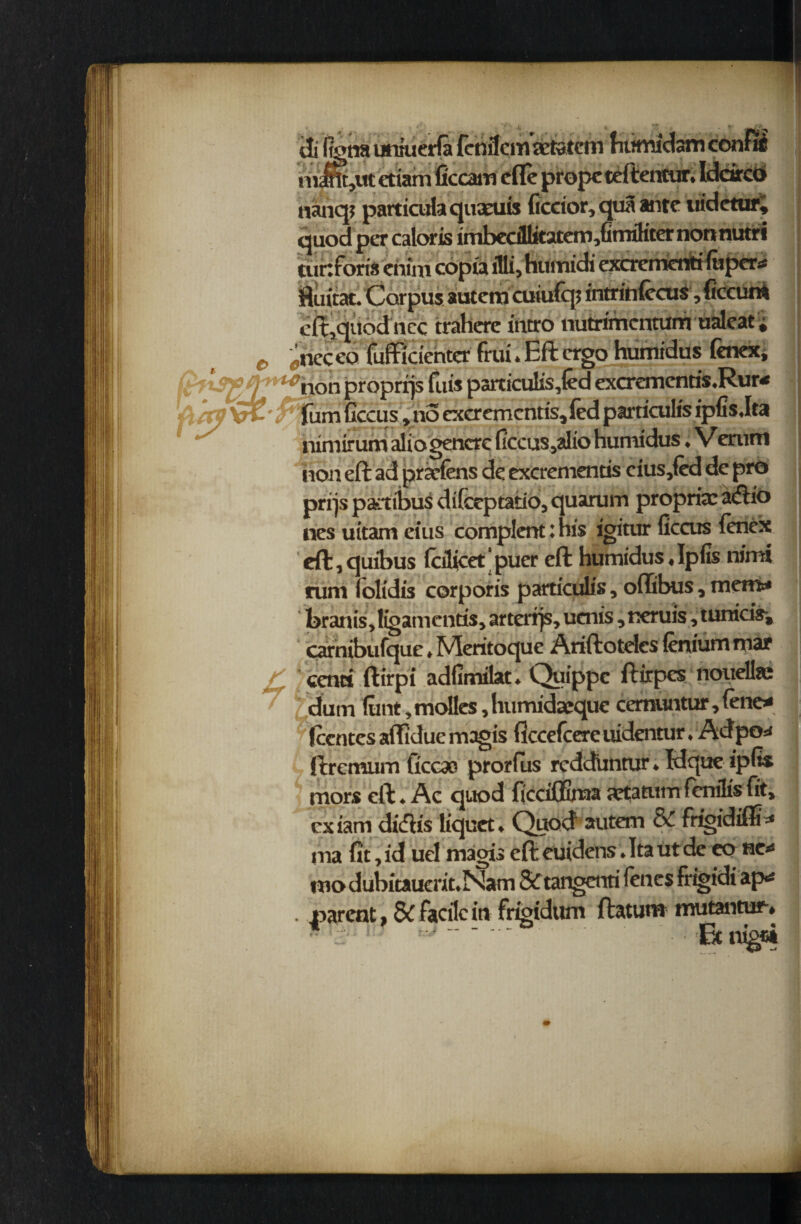 di signa uniuersa senilem ætatem humidam confir
mãnt,ut etiam siccam esse prope testentur. Idcirco
nanq; particula quæuis siccior, quã ante uidetur,
quod per caloris imbecillitatem,similiter non nutri
tur:foris enim copia illi, humidi excrementi super-
fluitat. Corpus autem cuiusq; intrinsecus, siccum
est,quod nec trahere intro nutrimentum ualeat,
nec eo sufficienter frui. Est ergo humidus senex,
non proprijs suis particulis,sed excrementis.Rur-
sum siccus, nõ excrementis, sed particulis ipsis.Ita
nimirum alio genere siccus,alio humidus. Verum
non est ad præsens de excrementis eius,sed de pro
prijs partibus disceptatio, quarum propriæ actio
nes uitam eius complent: his igitur siccus senex
est, quibus scilicet puer est humidus. Ipsis nimi
rum solidis corporis particulis, ossibus, mem-
branis, ligamentis, arterijs, uenis, neruis, tunicis,
carnibusque. Meritoque Aristoteles senium mar
centi stirpi adsimilat. Quippe stirpes nouellæ
dum sunt, molles, humidæque cernuntur, sene-
scentes assidue magis siccescere uidentur. Ad po-
stremum siccæ prorsus redduntur. Idque ipsis
mors est. Ac quod siccissima ætatum senilis fit,
ex iam dictis liquet. Quod autem & frigidissi-
ma fit, id uel magis est euidens. Ita ut de eo ne-
mo dubitauerit. Nam & tangenti senes frigidi ap-
parent, & facile in frigidum statum mutantur.
Et nigri